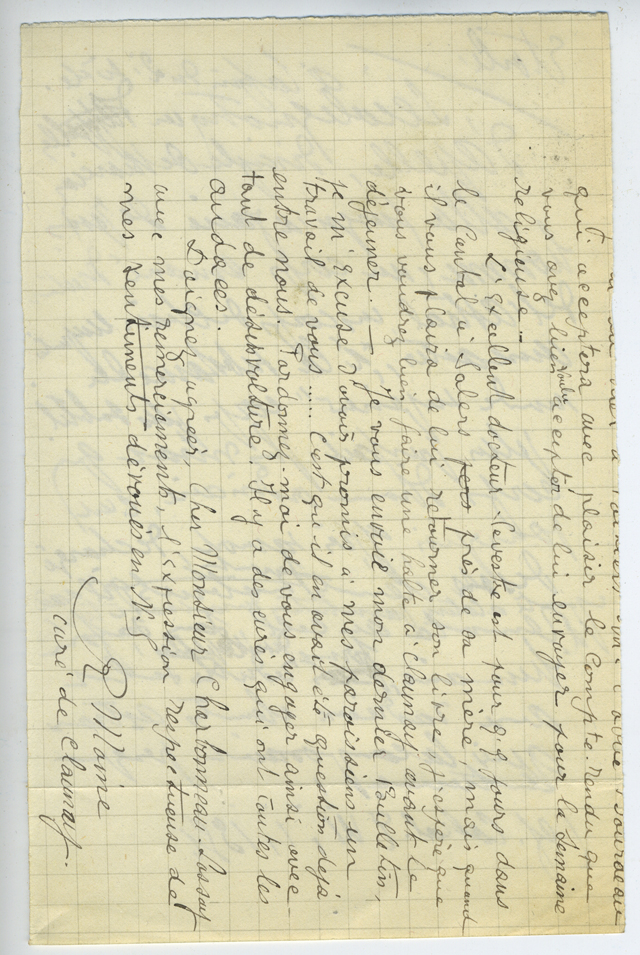 qui acceptera avec plaisir le Compte-rendu que
vous avez bien voulu accepter de lui envoyer pour la Semaine
Religieuse..
L'Excellent docteur Levestre est pour q.q. jours dans
le Cantal à Salers pers près de sa mère, mais quand
il vous plaira de lui retourner son livre, j'espère que
vous voudrez bien faire une halte à Claunay avant le
déjeuner. — Je vous envoie mon dernier Bulletin,
je m'excuse d'avoir promis à mes paroissiens un
travail de vous..... c'est qu'il en avait été question déjà
entre nous. Pardonnez-moi de vous engager ainsi avec
tant de désinvolture. Il y a des curés qui ont toutes les
audaces.
Daignez agréer, Cher Monsieur Charbonneau-Lassay
avec mes remerciements, l'expression respectueuse de
mes sentiments dévoués en N.S
R Moine
curé de Claunay.